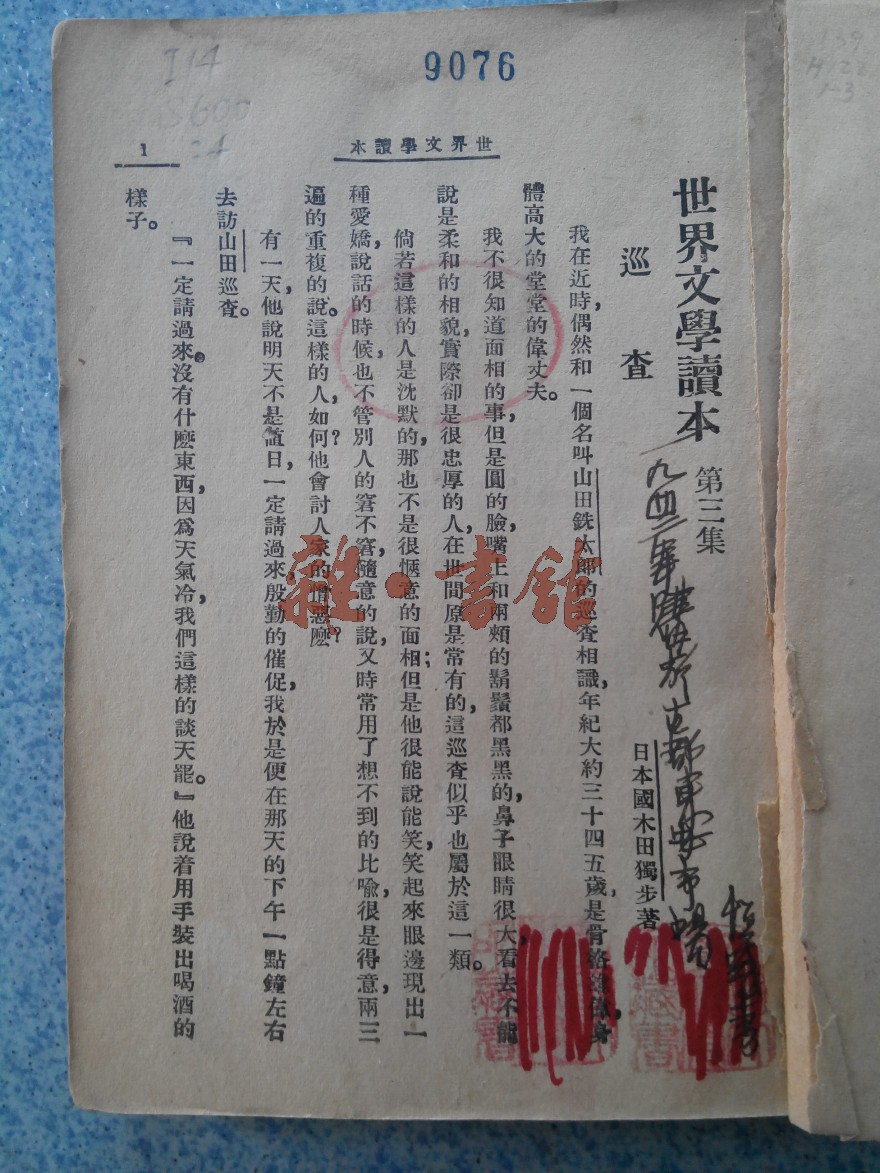 9076
I14
世界文學讀本
1
世界文學讀本 第三集
巡查
日本國木田獨步著
我在近時，偶然和一個名叫山田銑太郎的巡查相識，年紀大約三十四五歲，是骨格 身
體高大的堂堂的偉丈夫。
我不很知道面相的事，但是圓的臉，嘴上和兩頰的鬍鬚都黑黑的，鼻子眼睛很大，看去不能
說是柔和的相貌，實際卻是很忠厚的人，在世間原是常有的，這巡查似乎也屬於這一類。
倘若這樣的人是沈默的，那也不是很愜意的面相；但是他很能說能笑，笑起來眼邊現出一
種愛嬌，說話的時候，也不管別人的窘不窘，隨意的說，又時常用了想不到的比喻，很是得意，兩三
遍的重複的說。這樣的人，如何？他會討人家的憎惡麼？
有一天，他說明天不是值日，一定請過來，殷勤的催促，我於是便在那天的下午一點鐘左右
去訪山田巡查。
『一定請過來。沒有什麼東西，因爲天氣冷，我們這樣的談天罷。』他說着用手裝出喝酒的
樣子。
雜·書館